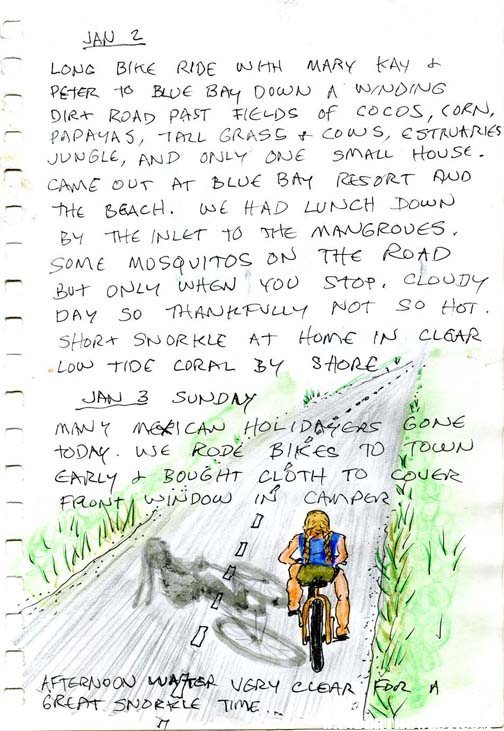 JAN 2
LONG BIKE RIDE WITH MARY KAY &
PETER TO BLUE BAY DOWN A WINDING
DIRT ROAD PAST FIELDS OF COCOS, CORN,
PAPAYAS, TALL GRASS & COWS, ESTUARIES
JUNGLE, AND ONLY ONE SMALL HOUSE.
CAME OUT AT BLUE BAY RESORT AND
THE BEACH. WE HAD LUNCH DOWN
BY THE INLET TO THE MANGROVES.
SOME MOSQUITOS ON THE ROAD
BUT ONLY WHEN YOU STOP. CLOUDY
DAY SO THANKFULLY NOT SO HOT.
SHORT SNORKLE AT HOME IN CLEAR
LOW TIDE CORAL BY SHORE.
JAN 3 SUNDAY
MANY MEXICAN HOLIDAYERS GONE
TODAY. WE RODE BIKES TO TOWN
EARLY & BOUGHT CLOTH TO COVER
FRONT WINDOW IN CAMPER
AFTERNOON WATER VERY CLEAR FOR A
GREAT SNORKLE TIME...